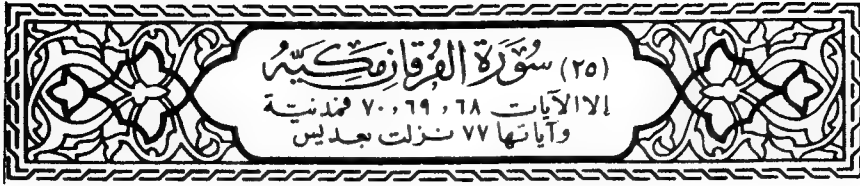 (٢٥) سُورَة الفُرقان مكيّة
إلا الآيات ٦٨ ، ٦٩ ، ٧٠ فمدنية
وآياتها ٧٧ نزلت بعد يس